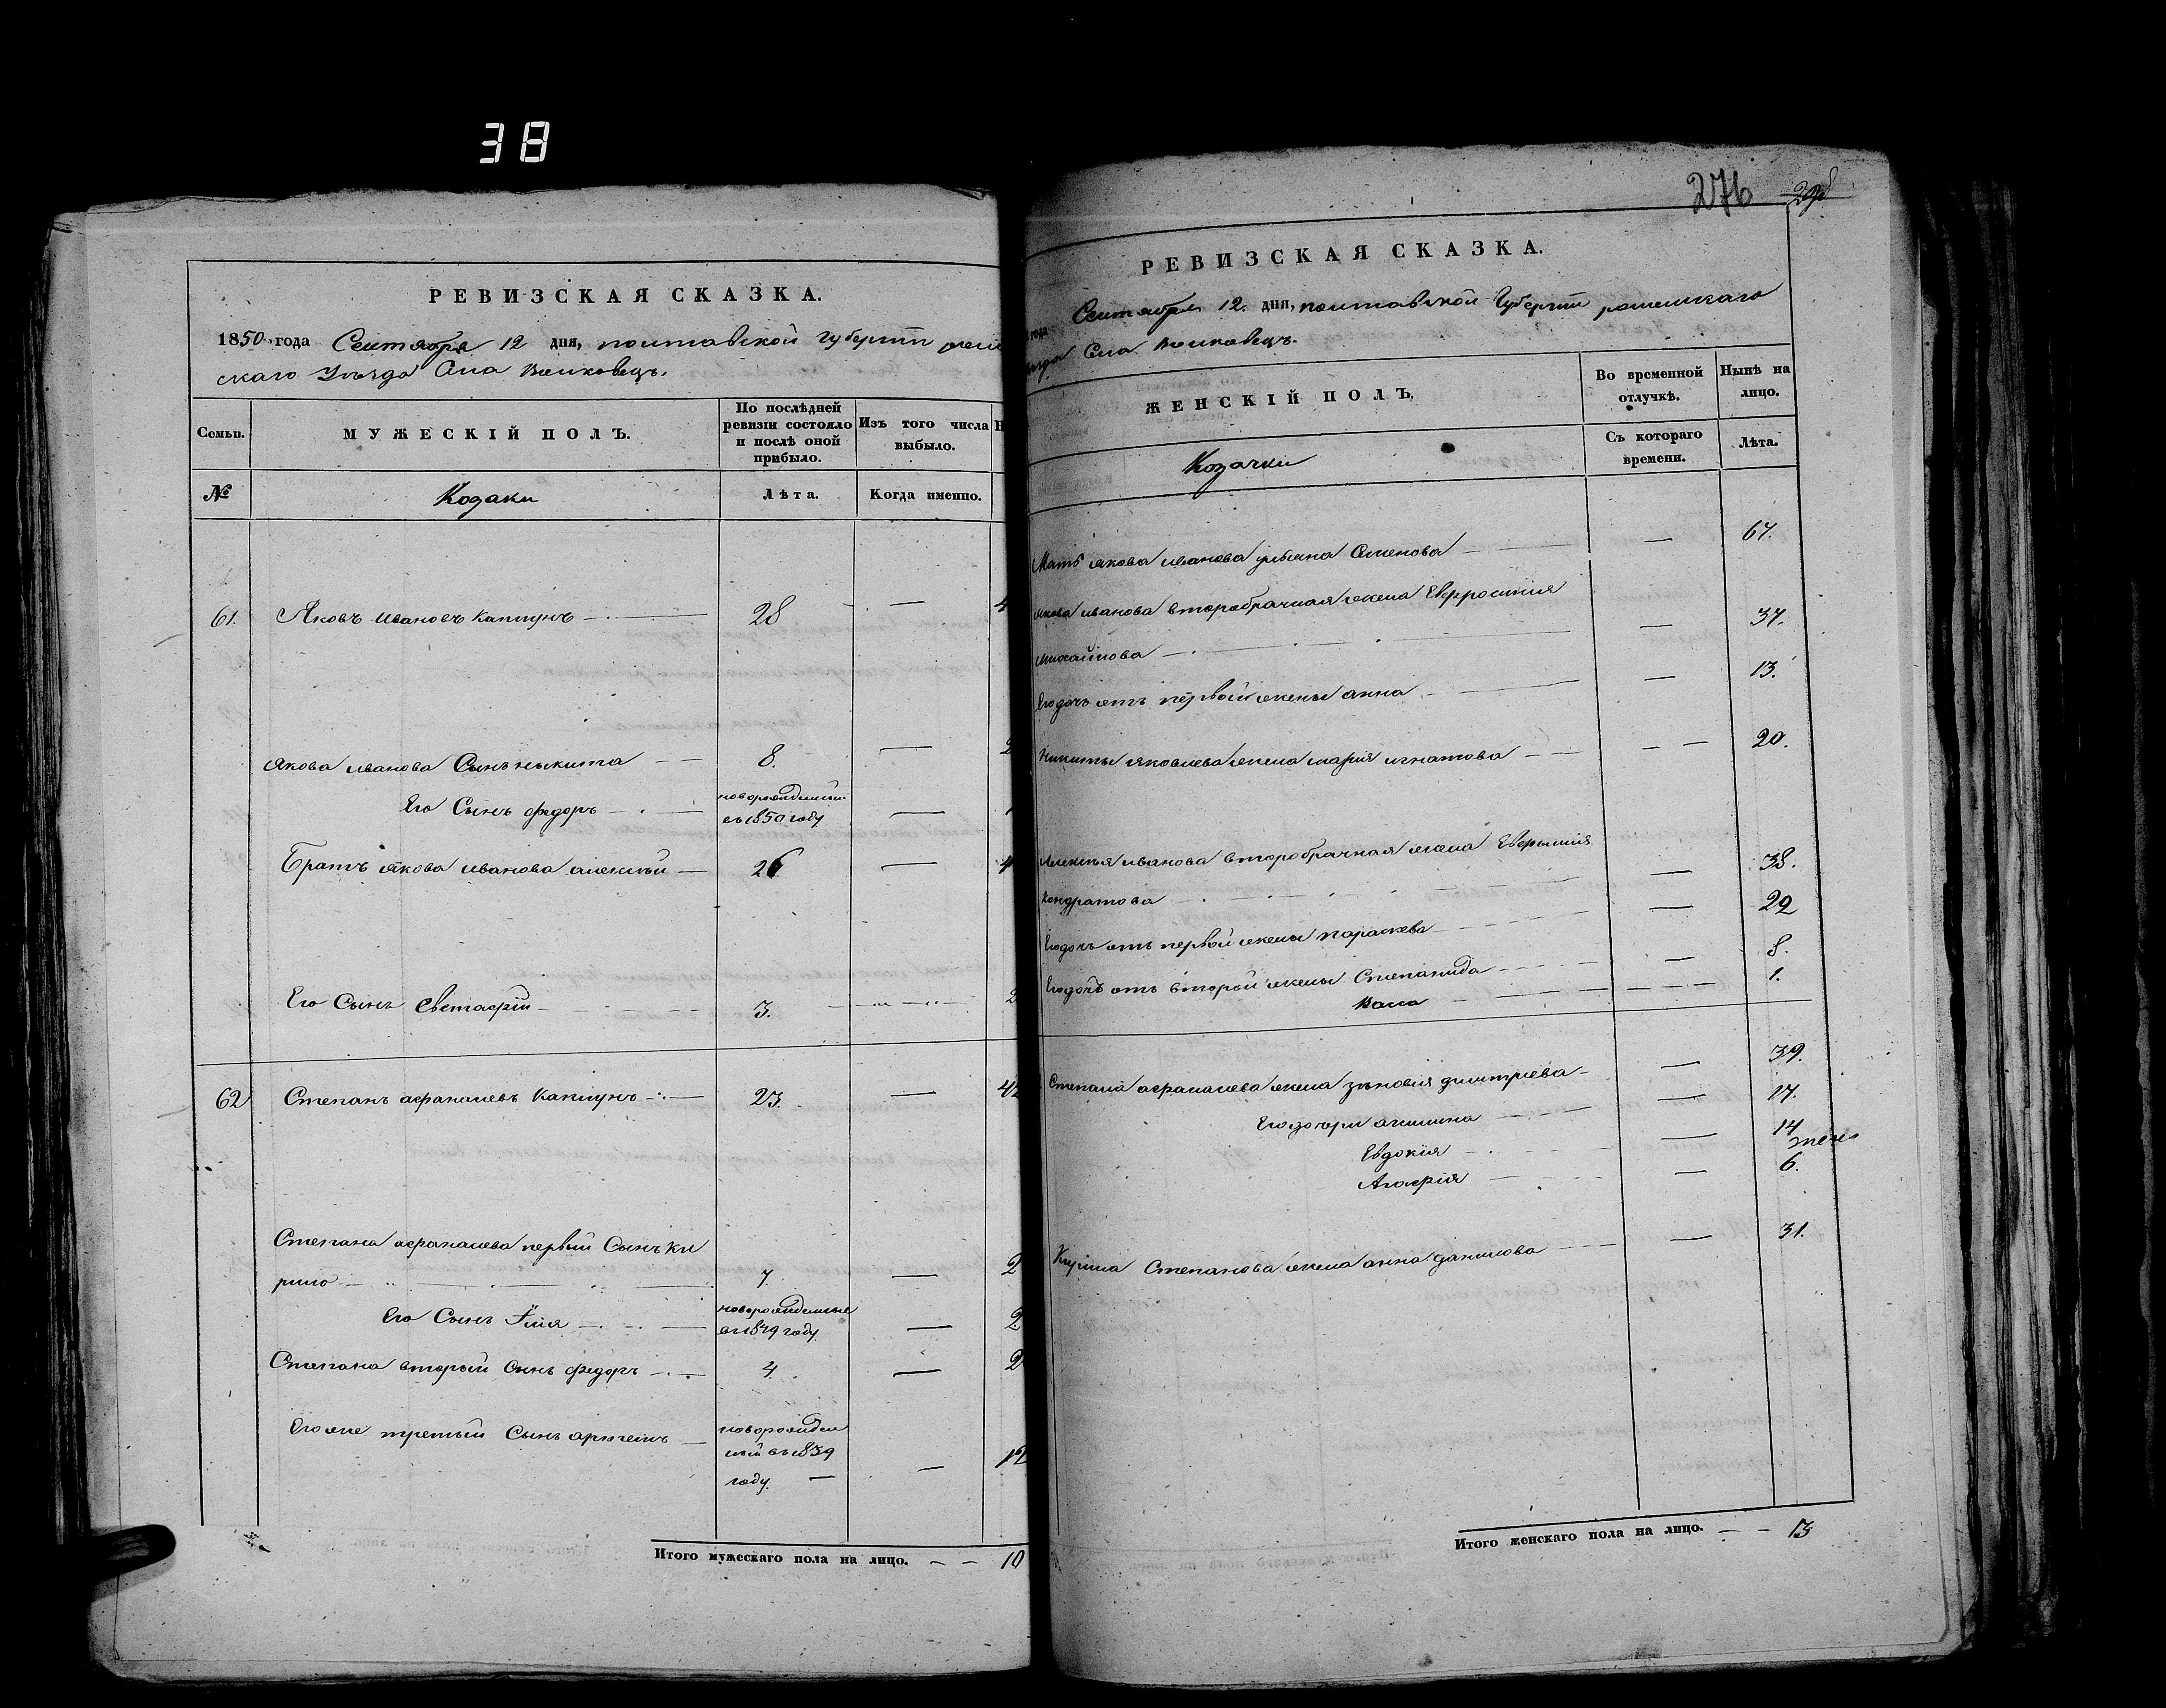 38
РЕВИЗСКАЯ СКАЗКА.
1850 года Сентября 12 дня, полтавской губернiи
скаго Уѣзда Сла Волковецъ.
Семьи.
МУЖЕСКIЙ ПОЛЪ.
По послѣдней ревизiи состояло и послѣ оной прибыло.
Изъ того числа выбыло.
№
Козаки
Лѣта.
Когда именно.
61. Яковъ Ивановъ Каплунъ 28 4
Якова Иванова Сынъ Никита 8. 2
Его Сынъ Федоръ новорожденный въ 1850 году
Братъ Якова Иванова Алексѣй 26 4
Его Сынъ Евстафiй 3. 2
62 Степанъ Афанасьевъ Каплунъ 23. 42
Степана Афанасьева первый Сынъ Ки
рило 7. 2
Его Сынъ Илiя новорожденные въ 1849 году 2
Степана вторый Сынъ Федоръ 4 2
Его же третiй Сынъ новорожден
ный въ 1839 12
году.
Итого мужескаго пола на лицо. 10
276
РЕВИЗСКАЯ СКАЗКА.
года Сентября 12. дня, полтавской Губернiи роменскаго
уѣзда Сла Волковецъ.
ЖЕНСКIЙ ПОЛЪ.
Во временной отлучкѣ.
Нынѣ на лицо.
Съ котораго времени.
Лѣта.
Козачки
Мать Якова Иванова Ульяна Семенова 67.
Якова Иванова второбрачная жена Евфросинiя
Михайлова 37.
Его дочь отъ первой жены Анна 13.
Никиты Яковлева жена Марiя Игнатова 20.
Алексѣя Иванова второбрачная жена Евфимiя
Кондратова 38.
Его дочь отъ первой жены Параскева 22
Его дочь отъ второй жены Степанида 8.
Васса 1.
Степана Афанасьева жена Зѣновiя Дмитрiева 39.
Его дочери Акилина 17.
Евдокiя 14
Агафiя 6.
Кирила Степанова жена Анна Данилова 31.
Итого женскаго пола на лицо. 13